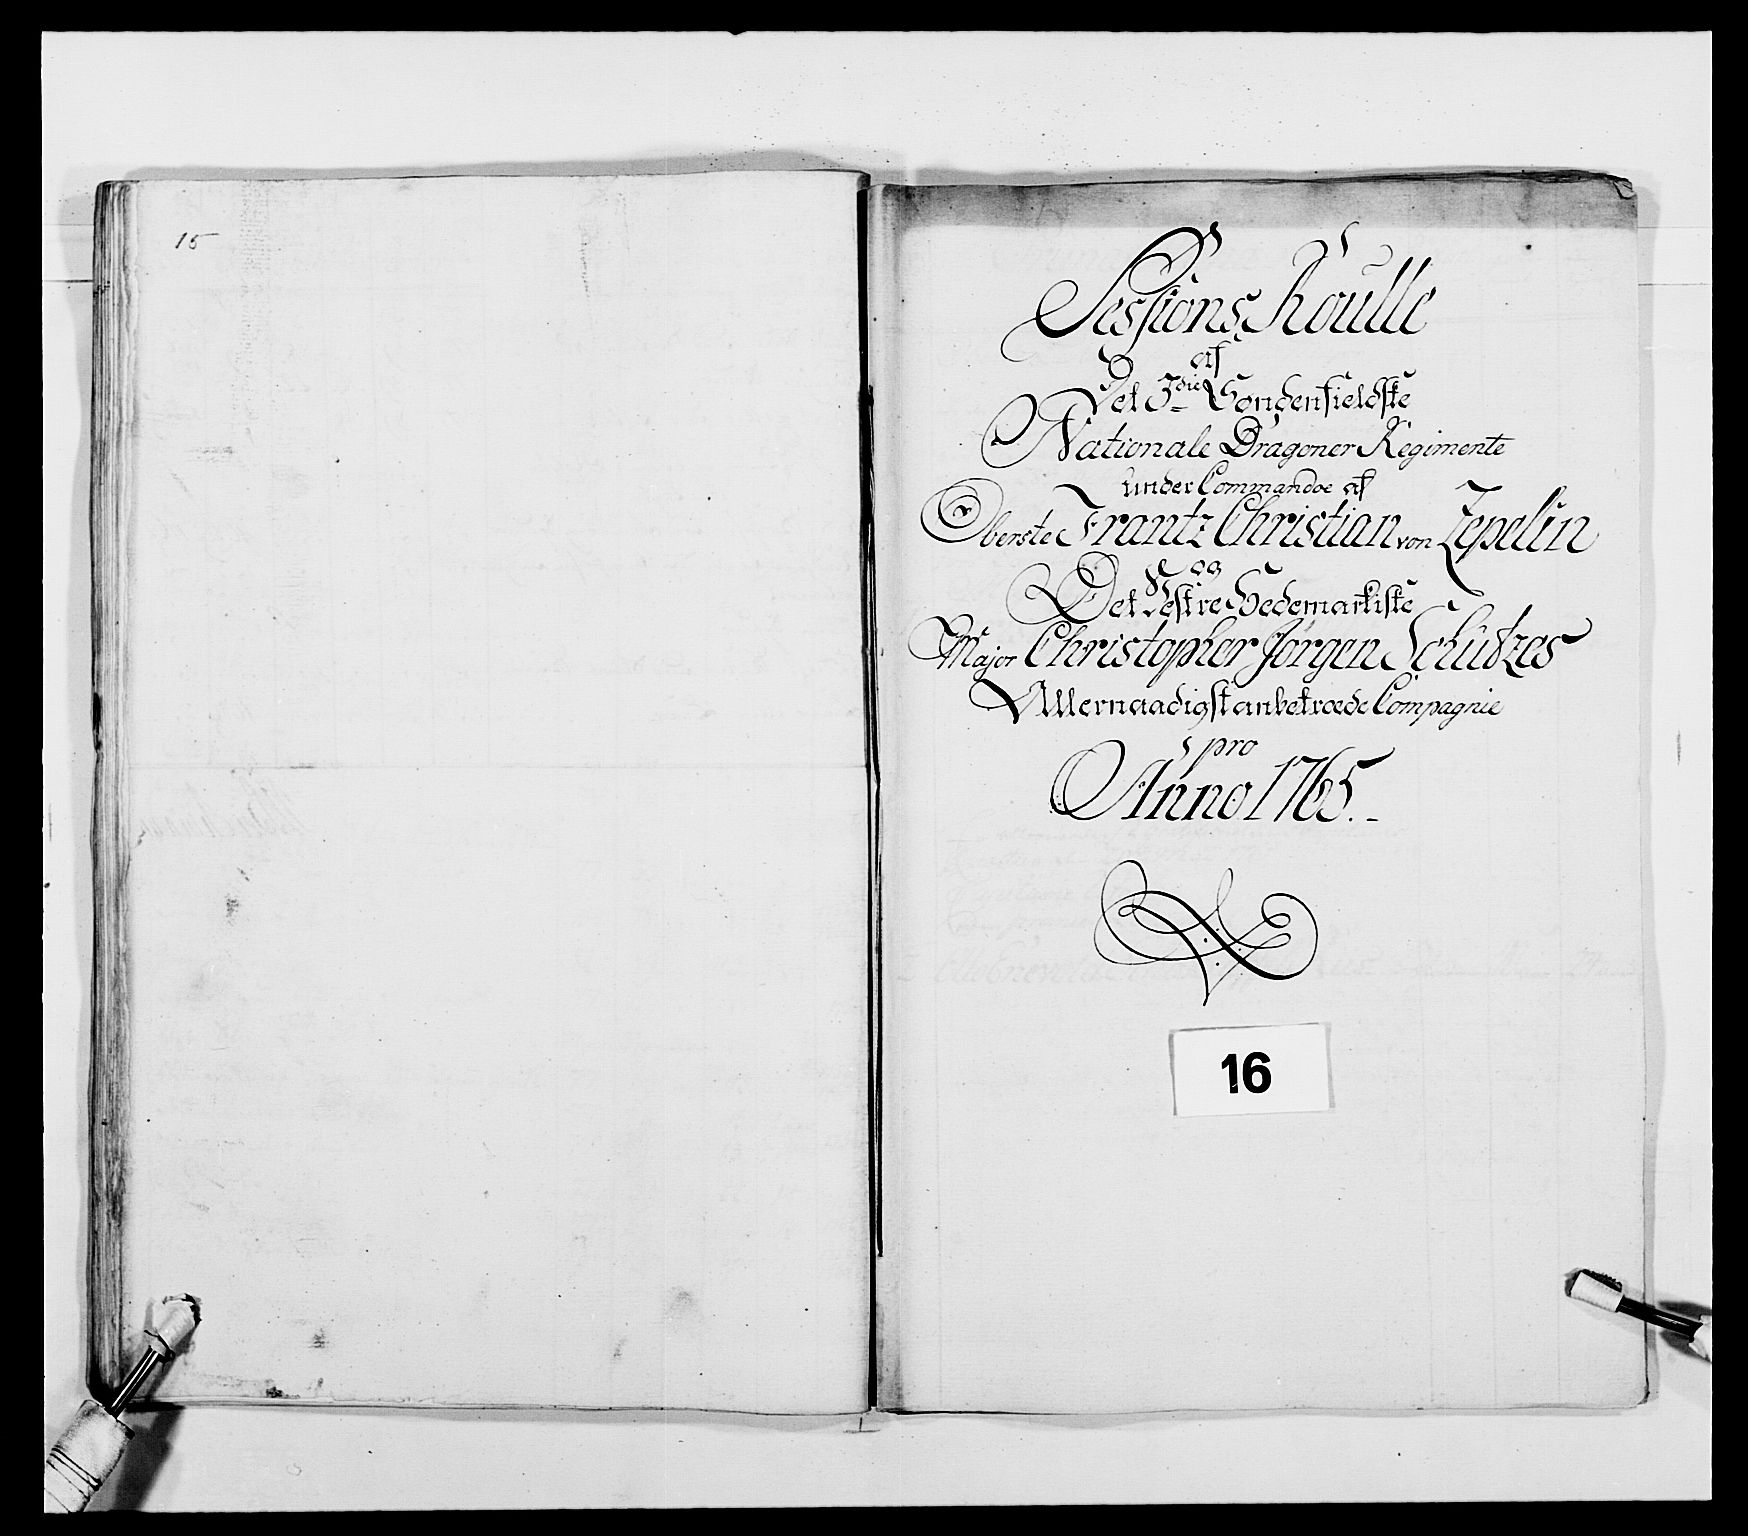 15
Sessions Roulle
af
Det 3die Søndenfieldske
Nationale Dragoner Regimente
under Commandoe af
Oberste Frantz Christian von Zepelin
og
Det Vestre Hedemarkiske
Major Christopher Jørgen Schützes
Allernaadigst anbetroede Compagnie
pro
Anno 1765.
16